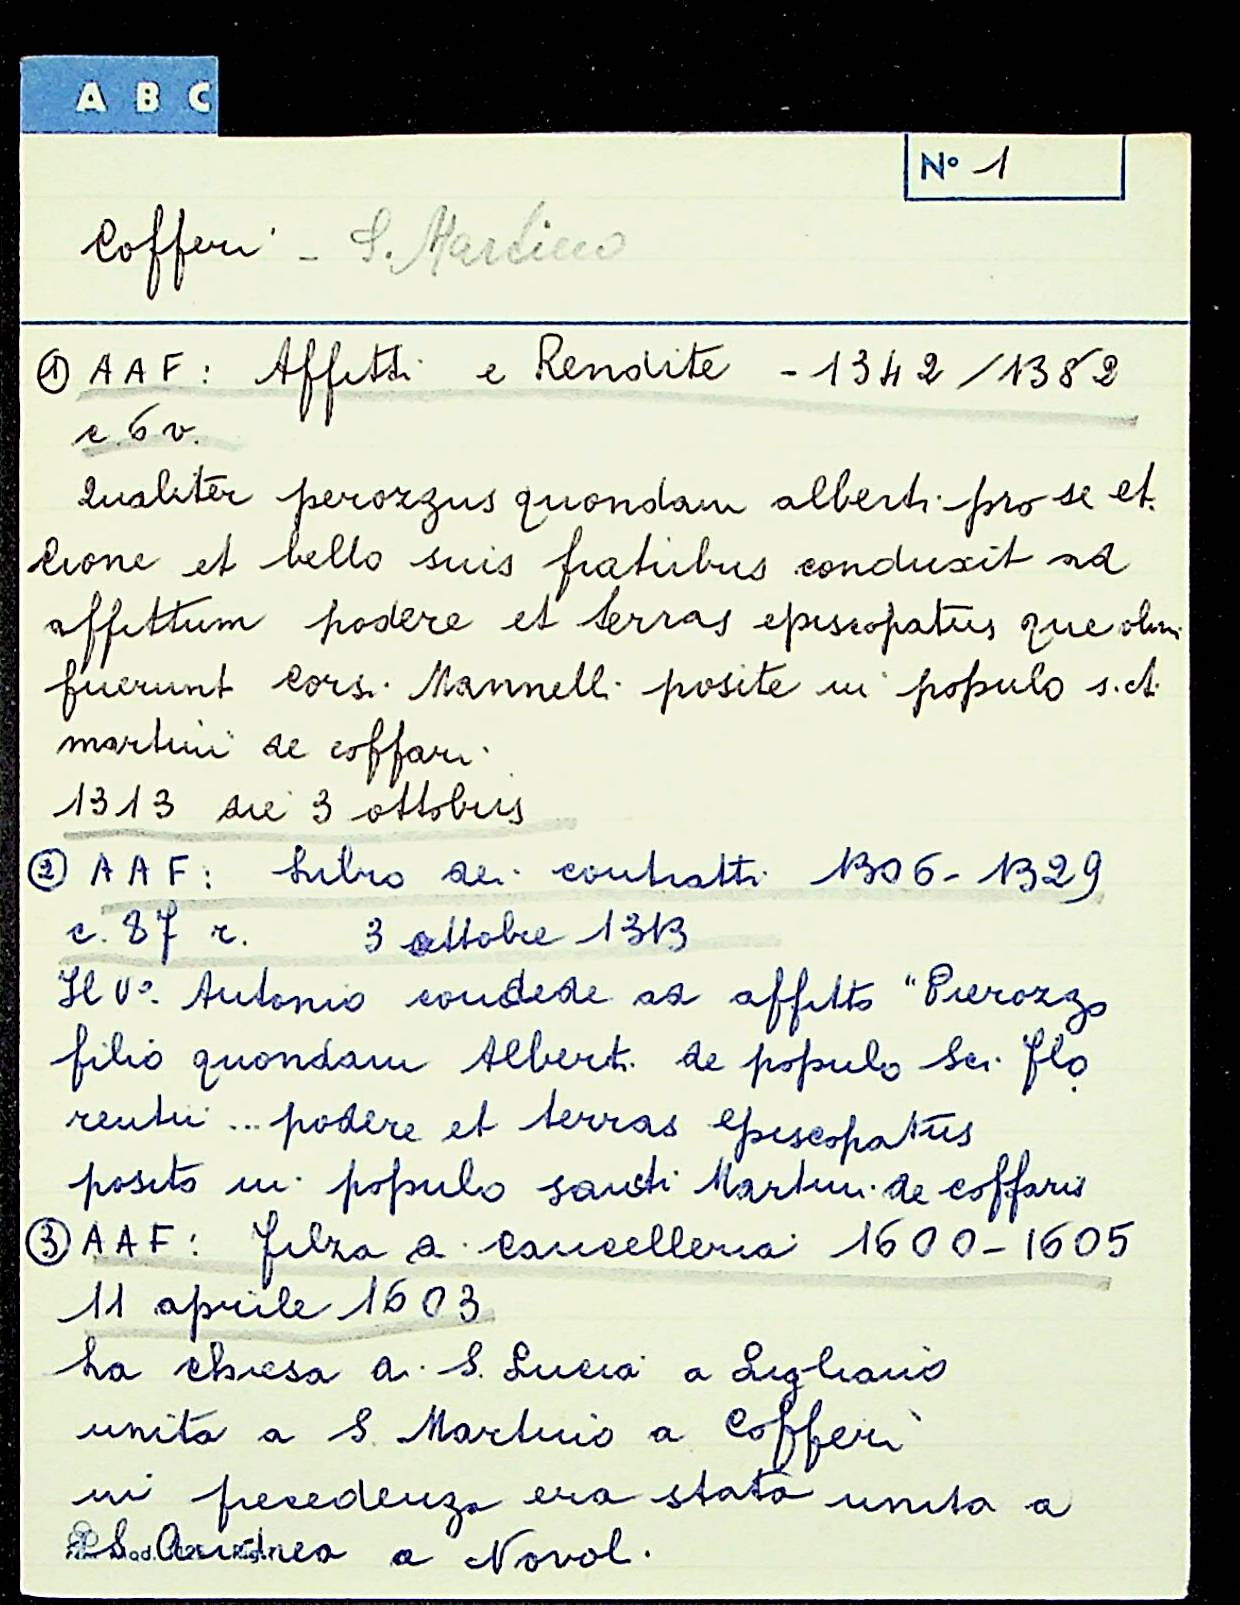 A B C
N° 1
Cofferi - S. Martino
① AAF: Affitti e Rendite - 1342/1382
c. 6 v.
Qualiter perozzus quondam alberti pro se et
Cione et bello suis fratribus conduxit ad
affittum podere et terras episcopatus que olim
fuerunt Corsi Mannelli posite in populo s.cti
martini de coffari
1313 die 3 ottobris
② AAF: Libro dei contratti 1306-1329
c. 87 r. 3 ottobre 1313
Il V°. Antonio concede ad affitto "Pierozzo
filio quondam Alberti de populo Sci. Flo
rentii ... podere et terras episcopatus
posito in populo sancti Martini de coffaris
③ AAF: Filza di Cancelleria 1600-1605
11 aprile 1603
La chiesa di S. Lucia a Ligliano
unita a S. Martino a Cofferi
in precedenza era stata unita a
S. Andrea a Novoli.